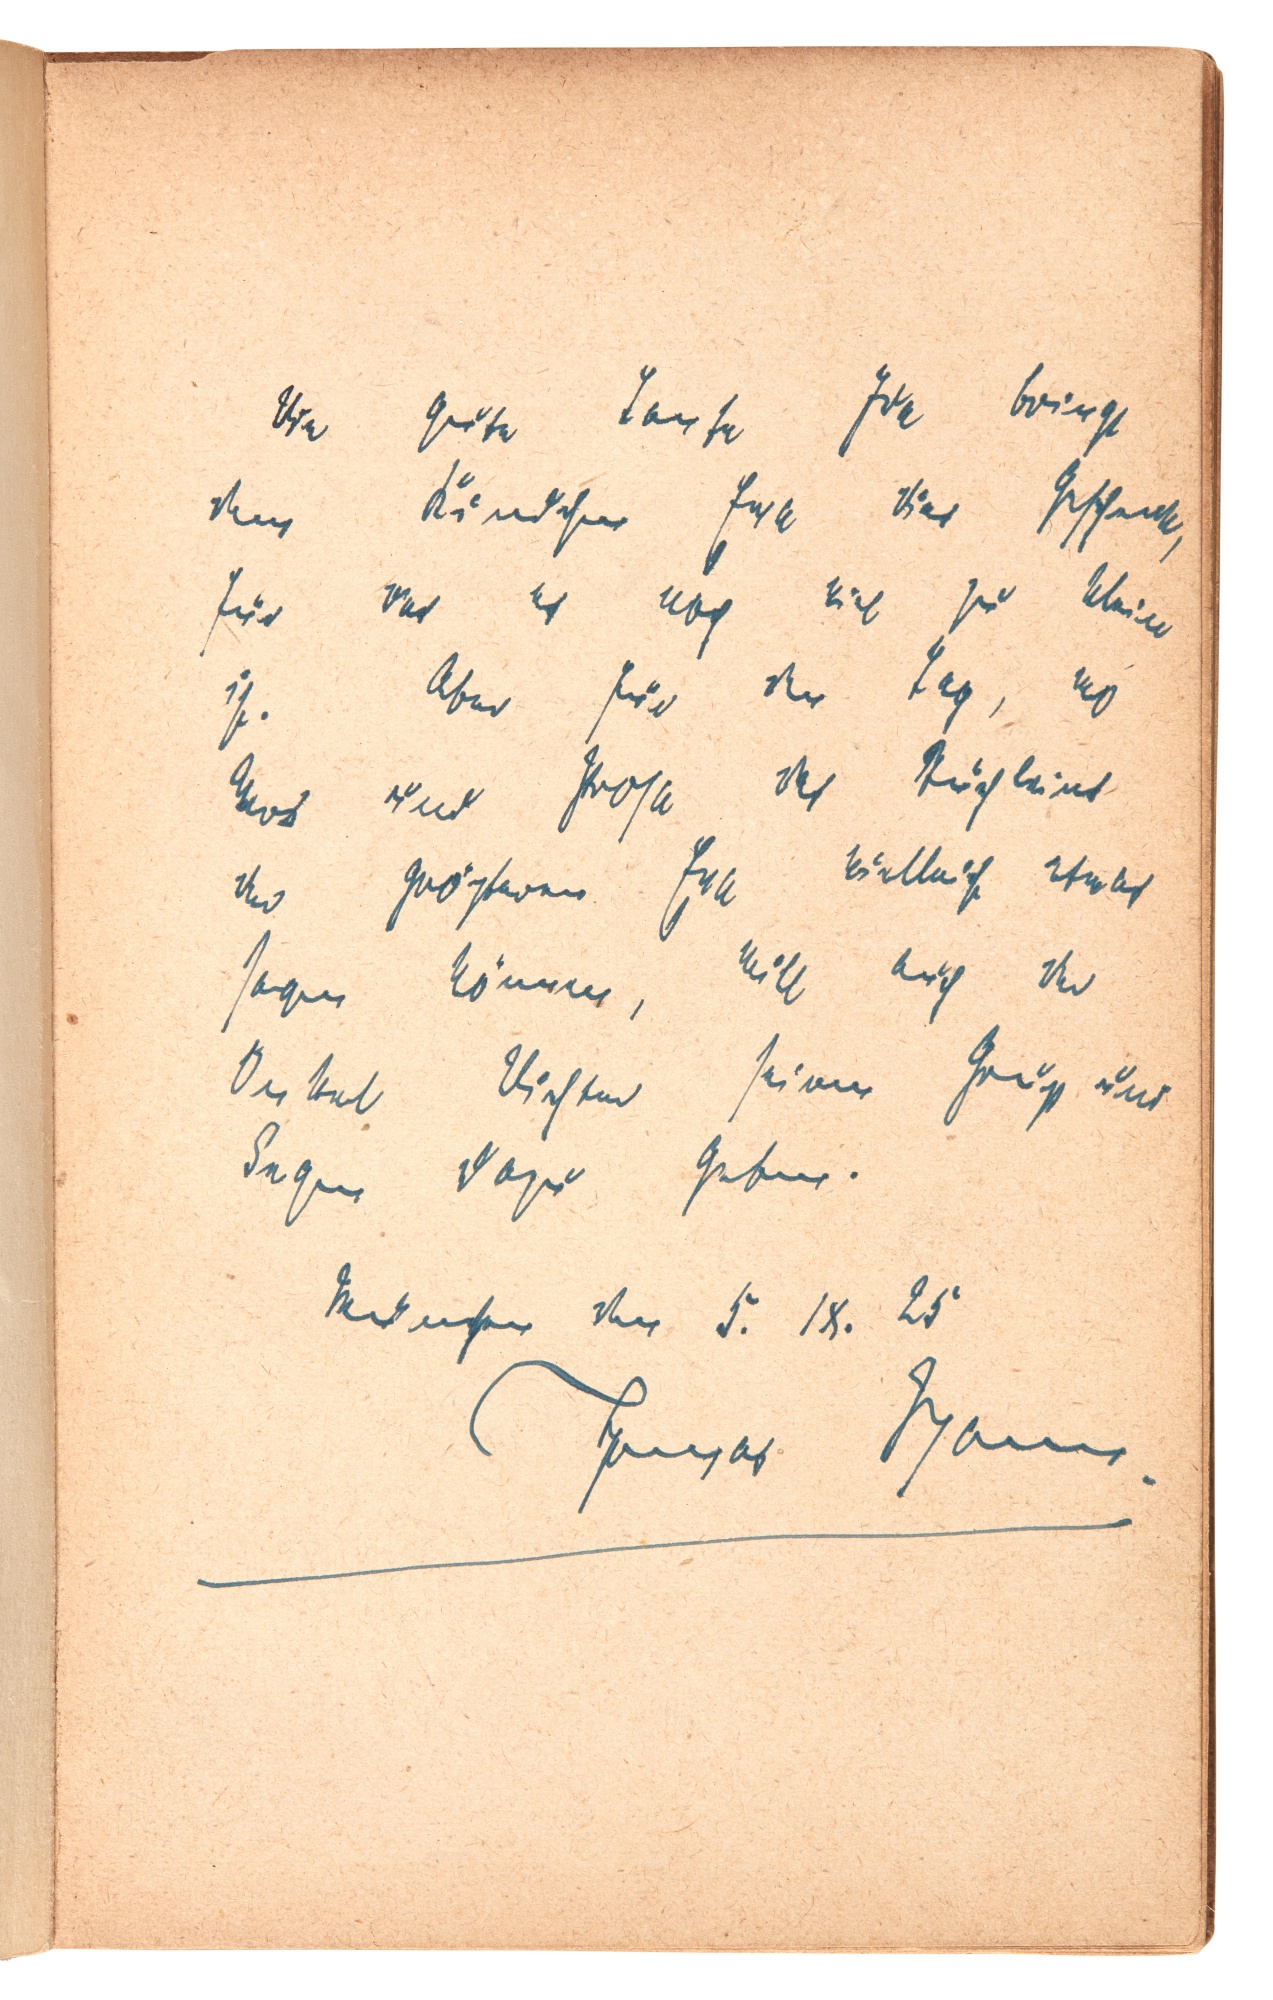 Die gute Tante Ida bringt
dem Kindchen dies Geschenk,
für das es noch viel zu klein
ist. Aber für den Tag, wo
Vers und Prosa des Büchleins
der größeren vielleicht etwas
sagen können, will auch der
Onkel Dichter seinen Gruß und
Segen dazu geben.
München den 5. IX. 25
Thomas Mann.